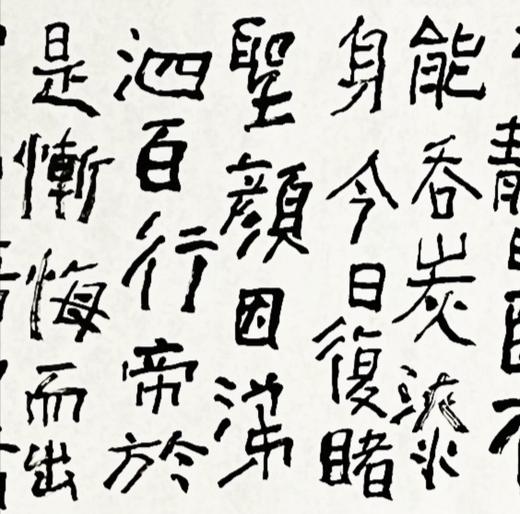 能吞炭漆
身今日復睹
聖顏因涕
泗百行帝於
是慚悔而出